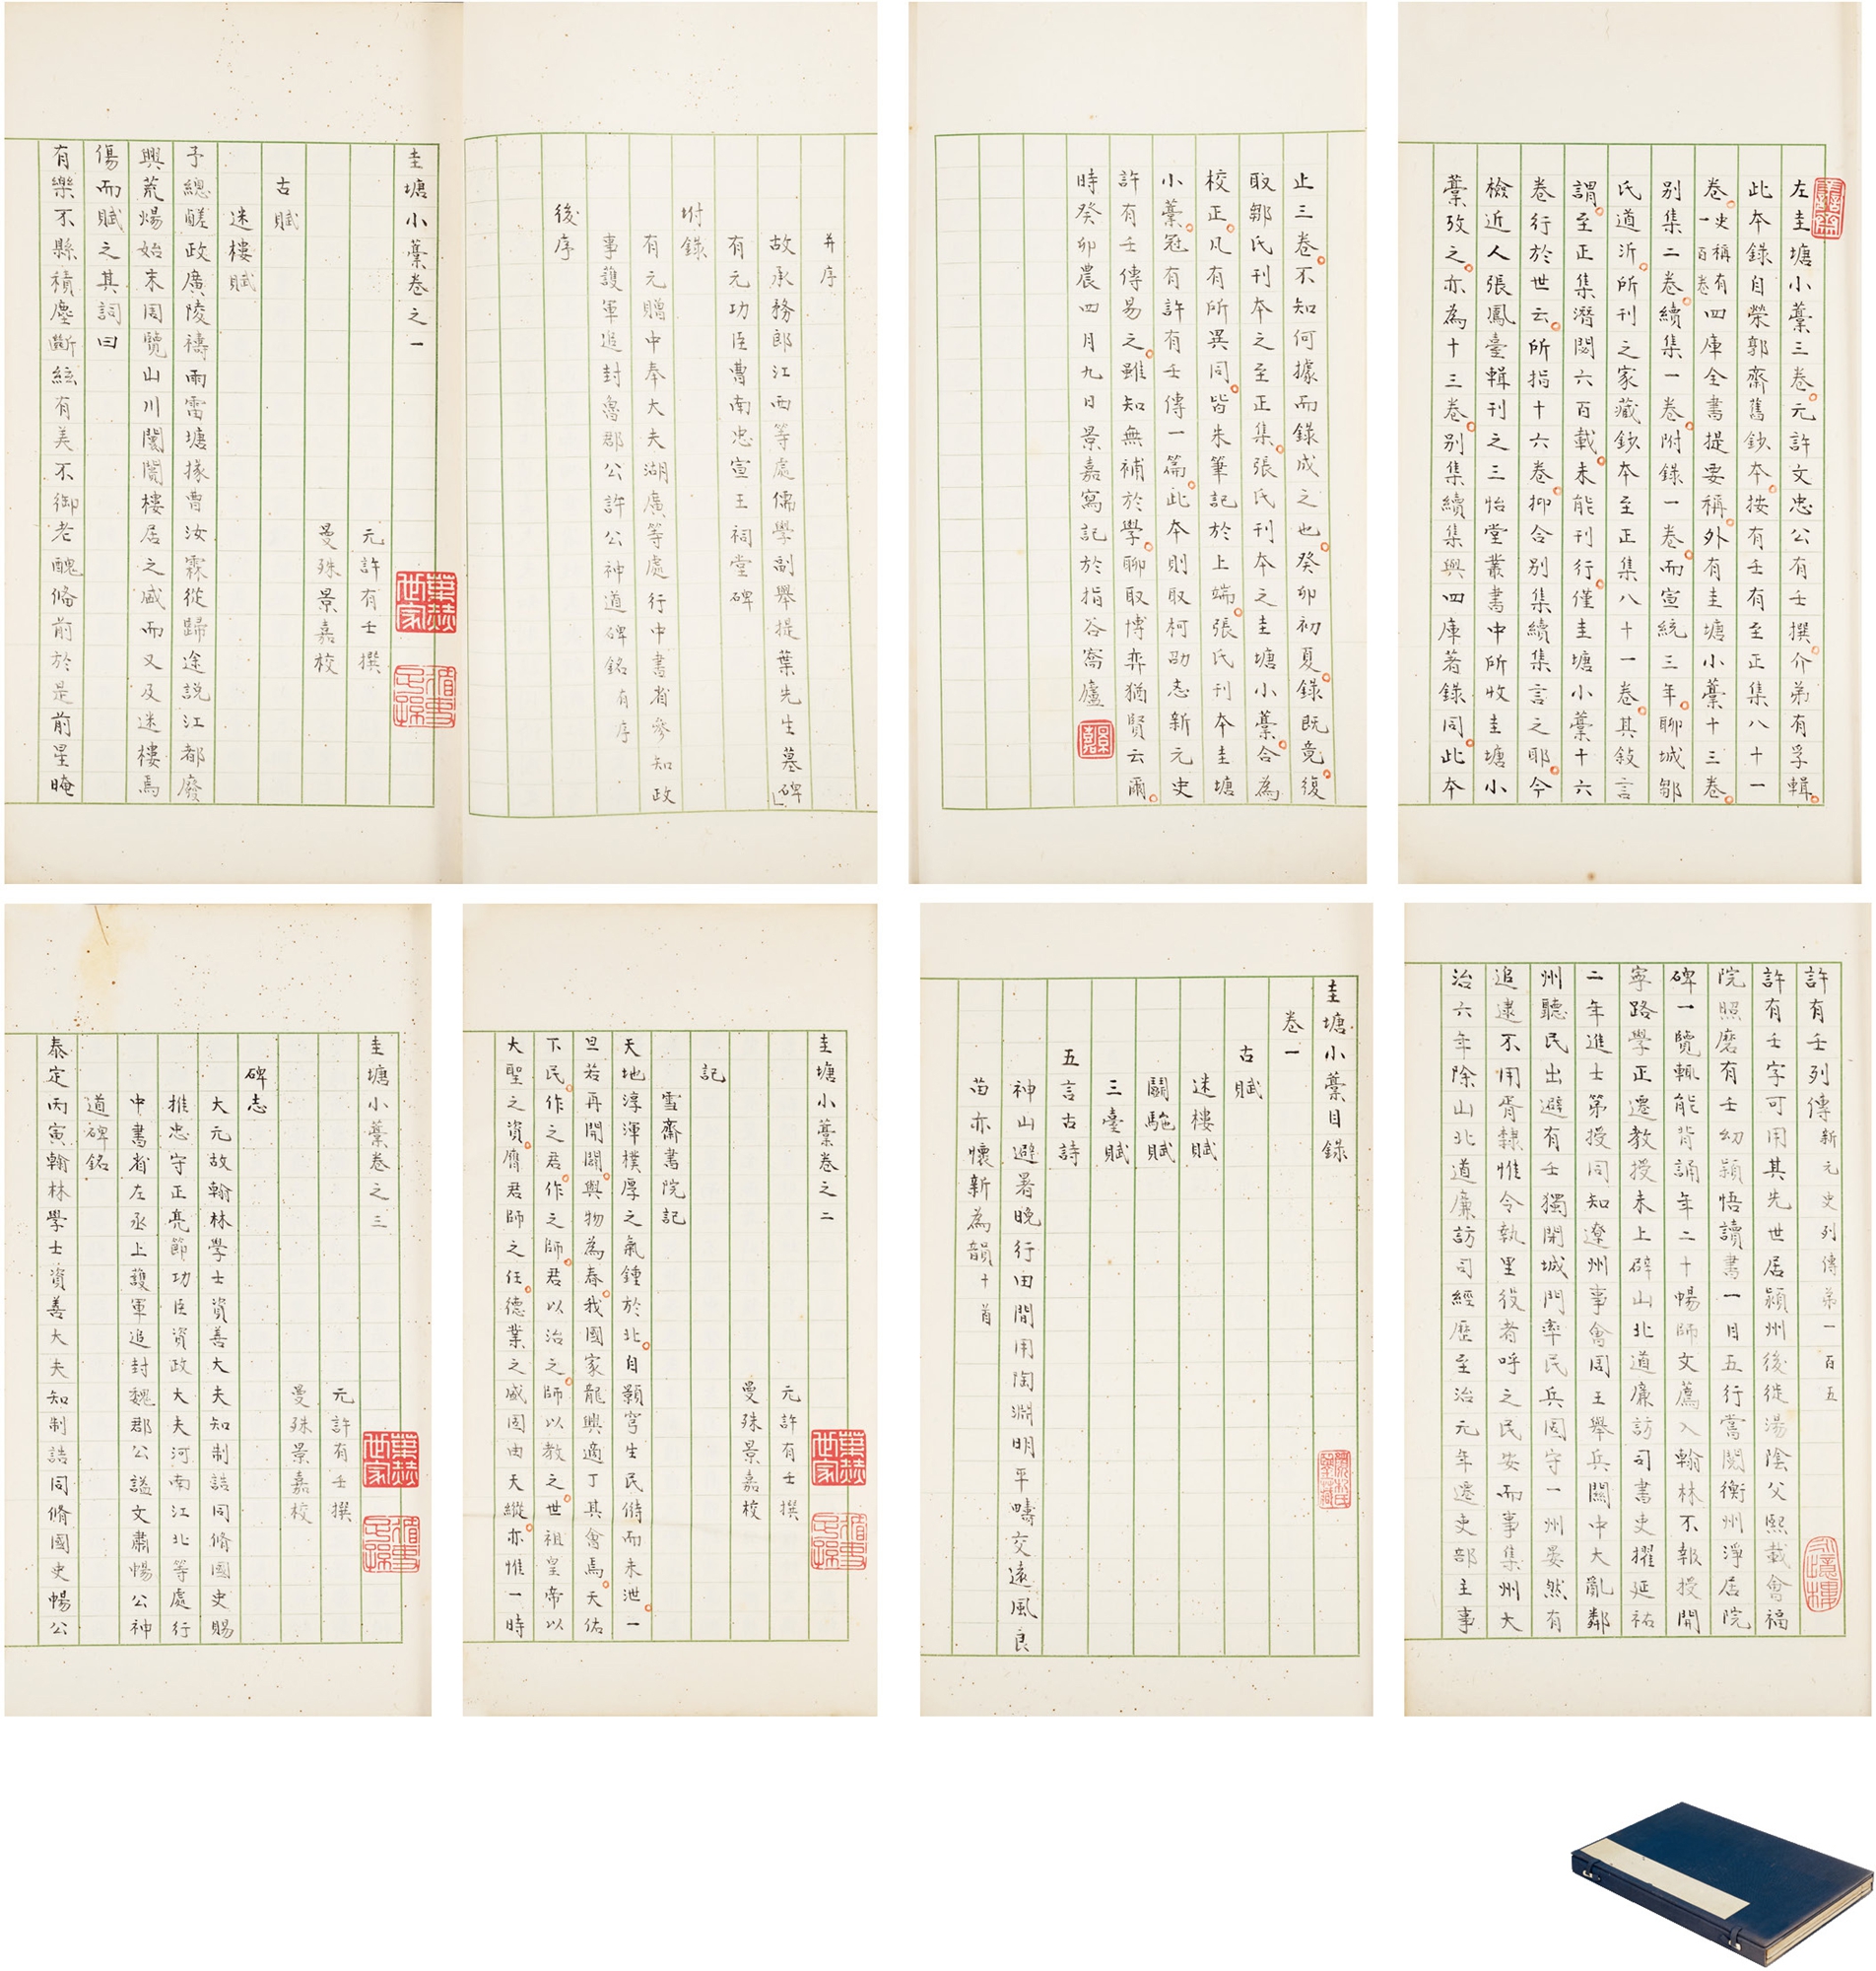 左圭塘小藁三卷元許文忠公有壬撰介弟有孚輯
此本錄自榮郭齋舊鈔本按有壬有至正集八十一
卷史稱有一百卷四庫全書提要稱外有圭塘小藁十三卷
别集二卷續集一卷附錄一卷而宣統三年聊城鄒
氏道沂所刊之家藏鈔本至正集八十一卷其敍言
謂至正集潛閟六百載未能刊行僅圭塘小藁十六
卷行於世云所指十六卷抑合别集續集言之耶今
檢近人張鳳臺輯刊之三怡堂叢書中所收圭塘小
藁攷之亦為十三卷别集續集與四庫著錄同此本
止三卷不知何據而錄成之也癸卯初夏錄既竟復
取鄒氏刊本之至正集張氏刊本之圭塘小藁合為
校正凡有所異同皆朱筆記於上端張氏刊本圭塘
小藁冠有許有壬傳一篇此本則取柯劭忞新元史
許有壬傳易之雖知無補於學聊取博弈猶賢云爾
時癸卯農四月九日景嘉寫記於指谷窩廬
并序
故承務郎江西等處儒學副舉提葉先生墓碑
有元功臣曹南忠宣王祠堂碑
坿錄
有元贈中奉大夫湖廣等處行中書省參知政
事護軍追封魯郡公許公神道碑銘有序
後序
圭塘小藁卷之一
元許有壬撰
曼殊景嘉校
葉赫世家
循吏之孫
古賦
迷樓賦
予總鹺政廣陵禱雨雷塘掾曹汝霖從歸途説江都廢
興荒煬始末周覽山川闤闠樓居之盛而又及迷樓焉
傷而賦之其詞曰
有樂不縣積塵斷絃有美不御老醜偹前於是前星晻
許有壬列傳新元史列傳弟一百五
許有壬字可用其先世居潁州後徙湯陰父熙載會福
院照磨有壬幼穎悟讀書一目五行嘗閱衡州淨居院
碑一覽輒能背誦年二十暢師文薦入翰林不報授開
寧路學正遷教授未上辟山北道廉訪司書吏擢延祐
二年進士第授同知遼州事會周王舉兵關中大亂鄰
州聽民出避有壬獨閉城門率民兵固守一州晏然有
追逮不用胥隸惟令執里役者呼之民安而事集州大
治六年除山北道廉訪司經歷至治元年遷吏部主事
圭塘小藁目錄
卷一
古賦
迷樓賦
鬭駞賦
三臺賦
五言古詩
神山避暑晚行田間用陶淵明平疇交遠風良
苗亦懷新為韻十首
圭塘小藁卷之二
元許有壬撰
曼殊景嘉校
葉赫世家
循吏之孫
記
雪齋書院記
天地淳渾樸厚之氣鍾於北自顥穹生民偫而未泄一
旦若再開闢與物為春我國家龍興適丁其會焉天佑
下民作之君作之師君以治之師以教之世祖皇帝以
大聖之資膺君師之任德業之盛固由天縱亦惟一時
圭塘小藁卷之三
元許有壬撰
曼殊景嘉校
葉赫世家
循吏之孫
碑志
大元故翰林學士資善大夫知制誥同脩國史賜
推忠守正亮節功臣資政大夫河南江北等處行
中書省左丞上護軍追封魏郡公謚文肅暢公神
道碑銘
泰定丙寅翰林學士資善大夫知制誥同脩國史暢公